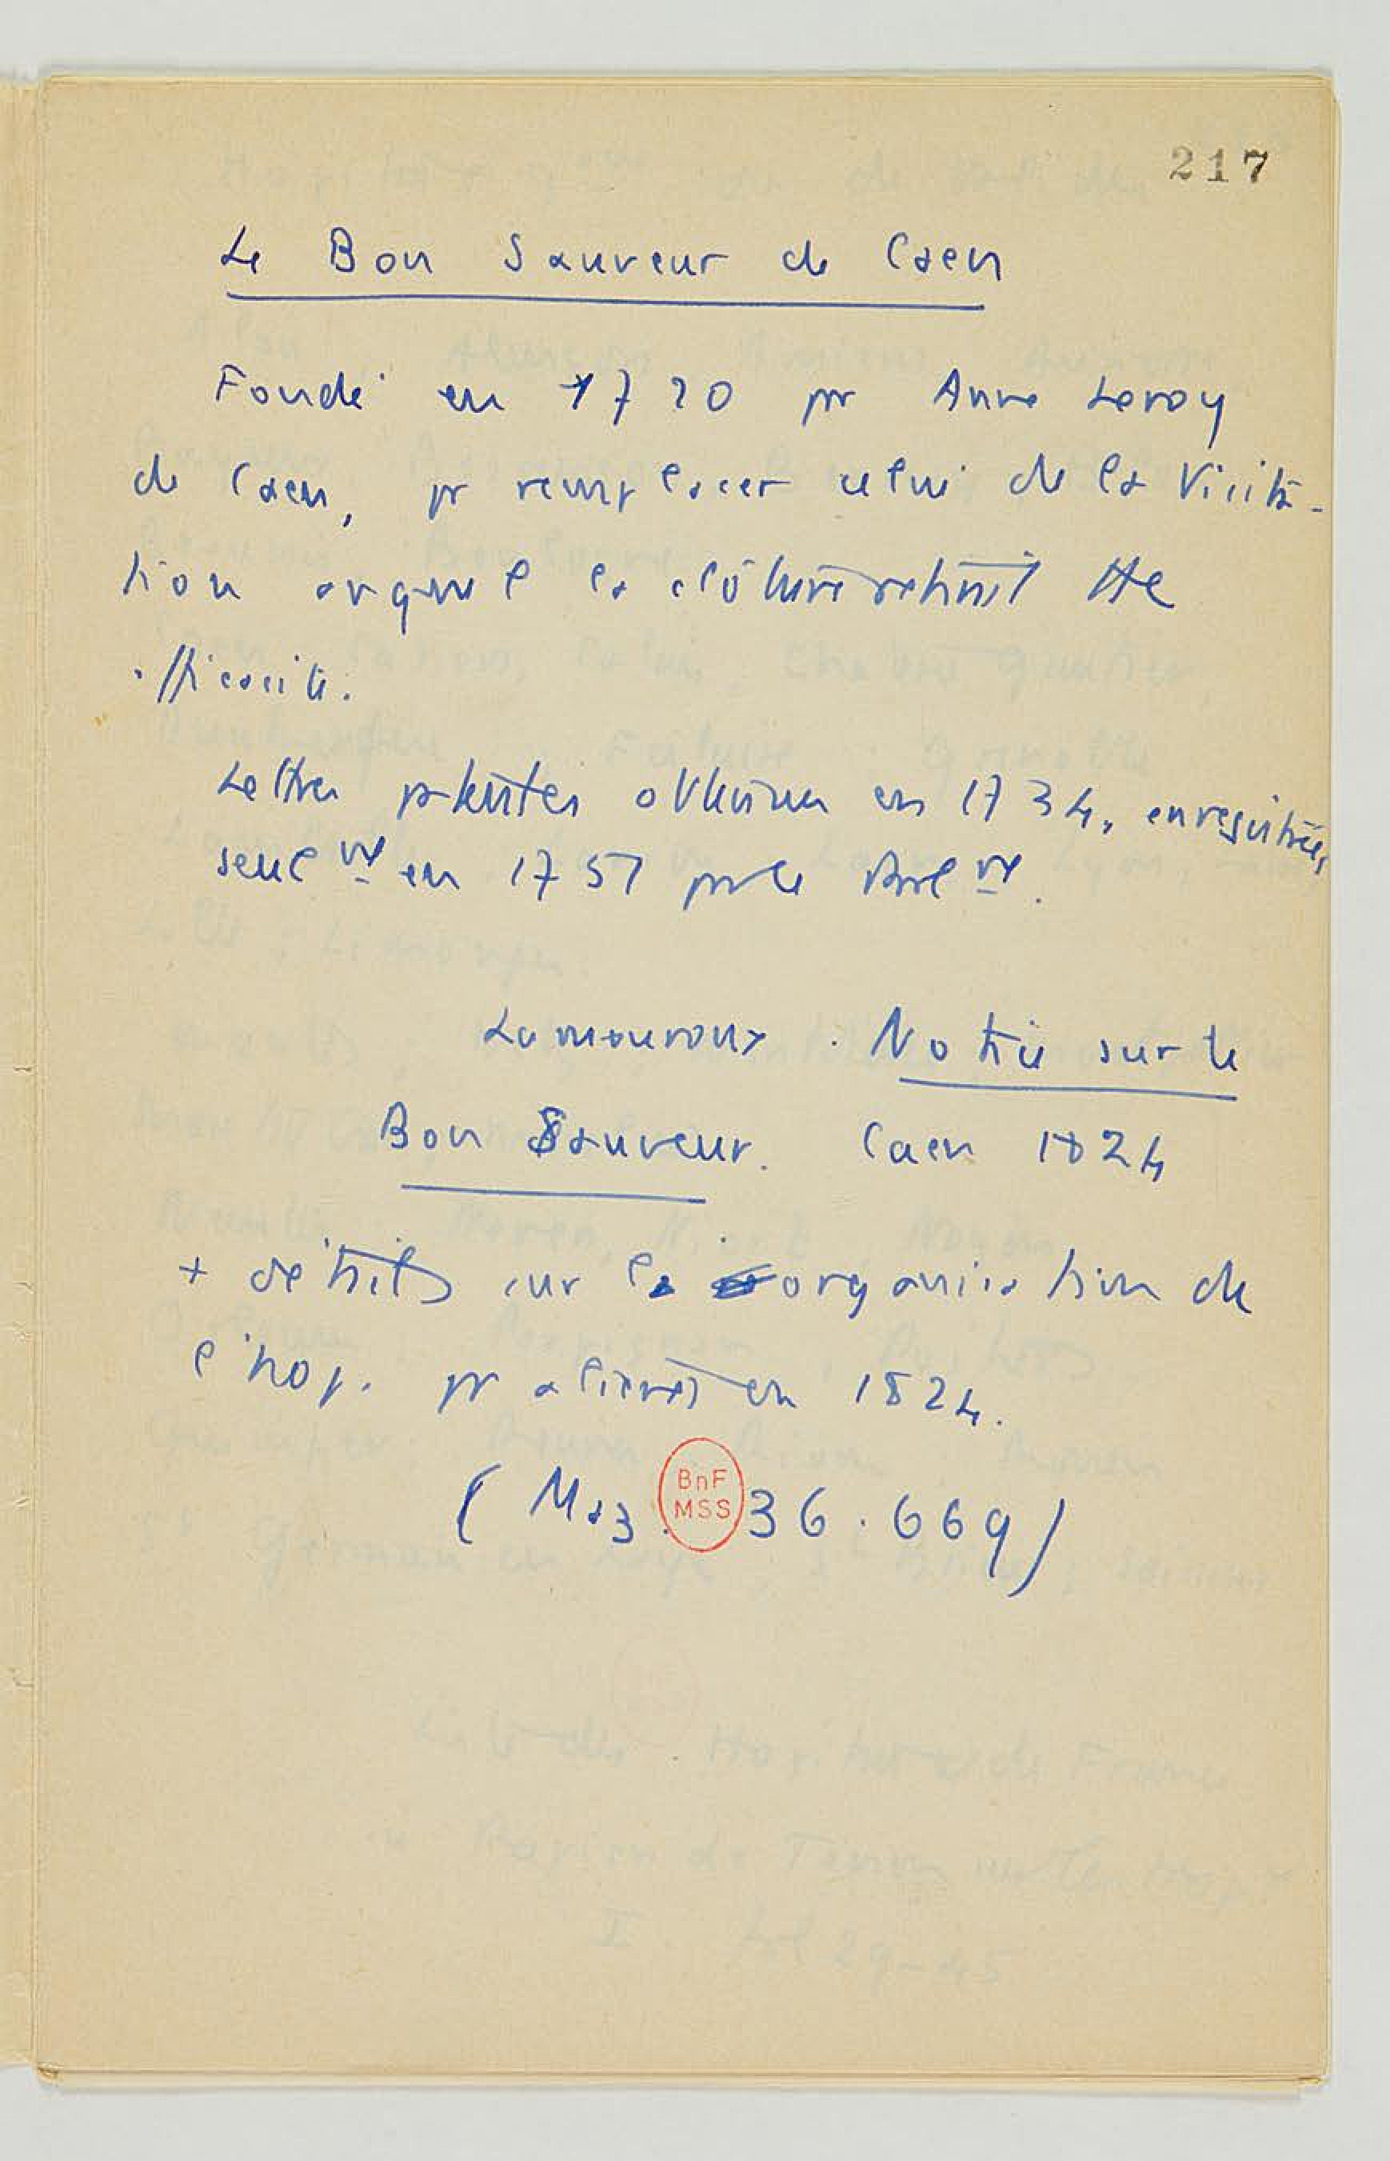 217
Le Bon Sauveur de Caen
Fondé en 1720 pr Anne Leroy
de Caen, pr remplacer celui de la Visita-
tion auquel la clôture retirait tte
efficacité.
Lettres patentes obtenues en 1734, enregistrées
seulnt en 1751 par le Parlnt.
Lamouroux. Notice sur le
Bon Sauveur. Caen 1824
+ détails sur l' organisation de
l'hop. pr aliénés en 1824.
(Maz. 36.669)
BnF
MSS